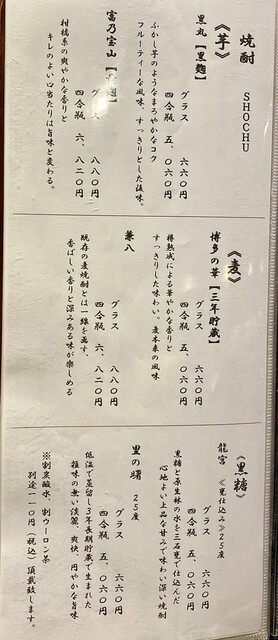 焼酎 SHOCHU
《芋》
黒丸【黒麹】
グラス 六六〇円
四合瓶 五、〇六〇円
ふかし芋のようなまろやかなコク
フルーティーな風味、すっきりとした後味。
富乃宝山
グラス 八八〇円
四合瓶 六、八二〇円
柑橘系の爽やかな香りと
キレのよい口当たりは旨味と変わる。
《麦》
博多の華【三年貯蔵】
グラス 六六〇円
四合瓶 五、〇六〇円
樽熟成による華やかな香りと
すっきりした味わい。麦本来の風味
兼八
グラス 八八〇円
四合瓶 六、八二〇円
既存の麦焼酎とは一線を画す、
香ばしい香りと深みある味が楽しめる
《黒糖》
龍宮 《甕仕込み》25度
グラス 六六〇円
四合瓶 五、〇六〇円
黒糖と原生林の水を三石甕で仕込んだ
心地よい上品な甘みで味わい深い焼酎
里の曙 25度
グラス 六六〇円
四合瓶 五、〇六〇円
低温で蒸留し3年長期貯蔵で生まれた
雑味の無い淡麗、爽快、円やかな旨味
※割炭酸水、割ウーロン茶
別途一一〇円（税込）頂戴致します。